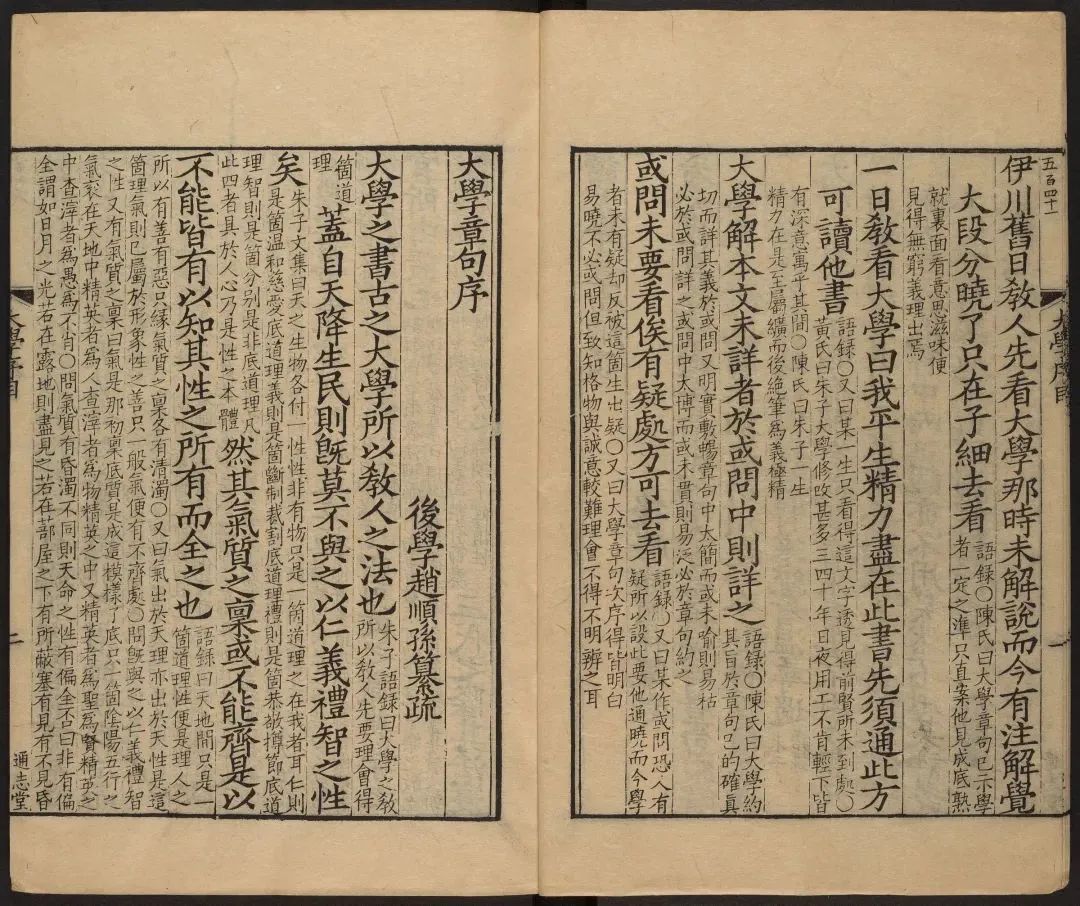 五百四十
伊川舊日教人先看大學那時未解說而今有注解覺
大段分曉了只在子細去看
語錄○陳氏曰大學章句已示學
者一定之準只直案他見成底熟
就裏面看意思滋味便
見得無窮義理出焉
一日教看大學曰我平生精力盡在此書先須通此方
可讀他書
語錄○又曰某一生只看得這文字透見得前賢所未到處○
黃氏曰朱子大學修改甚多三四十年日夜用工不肯輕下皆
有深意寓乎其間○陳氏曰朱子一生
精力在是至屬纊而後絕筆爲義極精
大學解本文未詳者於或問中則詳之
語錄○陳氏曰大學約
其旨於章句已的確眞
切而詳其義於或問又明實敷暢章句中太簡而或未喻則易枯
必於或問詳之或問中太博而或未貫則易泛必於章句約之
或問未要看俟有疑處方可去看
語錄○又曰某作或問恐人有
疑所以設此要他通曉而今學
者未有疑却反被這箇生出疑○又曰大學章句次序得皆明白
易曉不必或問但致知格物與誠意較難理會不得不明辨之耳
大學序
一
大學章句序
後學趙順孫纂疏
大學之書古之大學所以教人之法也
朱子語錄曰大學之教
所以教人先要理會得
箇道
理
蓋自天降生民則旣莫不與之以仁義禮智之性
矣
朱子文集曰天之生物各付一性性非有物只是一箇道理之在我者耳仁則
是箇温和慈愛底道理義則是箇斷制裁割底道理禮則是箇恭敬撙節底道
理智則是箇分别是非底道理凡
此四者具於人心乃是性之本體
然其氣質之稟或不能齊是以
不能皆有以知其性之所有而全之也
語錄曰天地間只是一
箇道理性便是理人之
所以有善有惡只緣氣質之稟各有清濁○又曰氣出於天理亦出於天性是這
箇理氣則已屬於形象性之善只一般氣便有不齊處○問旣與之以仁義禮智
之性又有氣質之稟曰氣是那初稟底質是成這模樣了底只一箇陰陽五行之
氣衮在天地中精英者爲人查滓者爲物精英之中又精英者爲聖爲賢精英之
中查滓者爲愚爲不肖○問氣質有昏濁不同則天命之性有偏全否曰非有偏
全謂如日月之光若在露地則盡見之若在蔀屋之下有所蔽塞有見有不見昏
大學序
二
通志堂